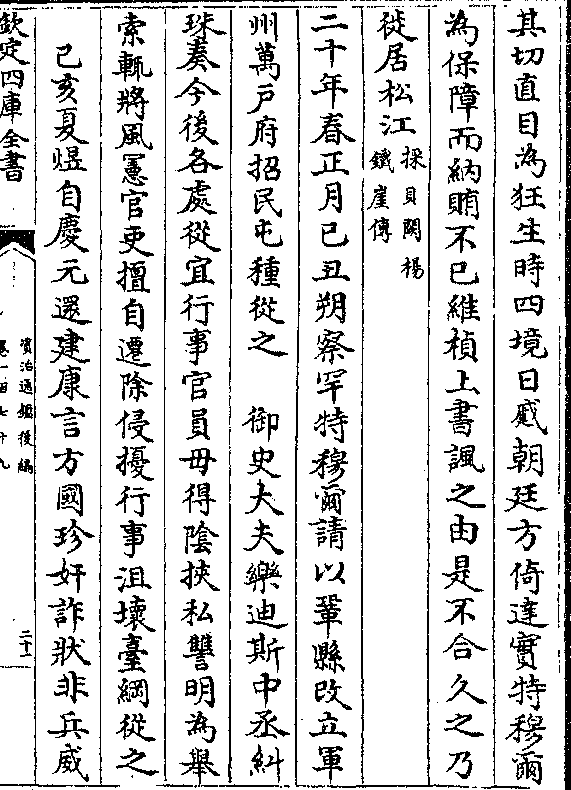 其切直目為狂生時四境日慼朝廷方倚達實特穆爾
為保障而納賄不已維楨上書諷之由是不合久之乃
徙居松江採貝闕楊
鐵崖傳
二十年春正月己丑朔察罕特穆爾請以鞏縣改立軍
州萬戶府招民屯種從之　御史大夫樂迪斯中丞糾
珠奏今後各處從宜行事官員毋得陰挾私讐明為舉
索輒將風憲官吏擅自遷除侵擾行事沮壞臺綱從之
己亥夏煜自慶元還建康言方國珍奸詐狀非兵威
欽定四庫全書
資治通鑑後編
卷一百七十九
二十